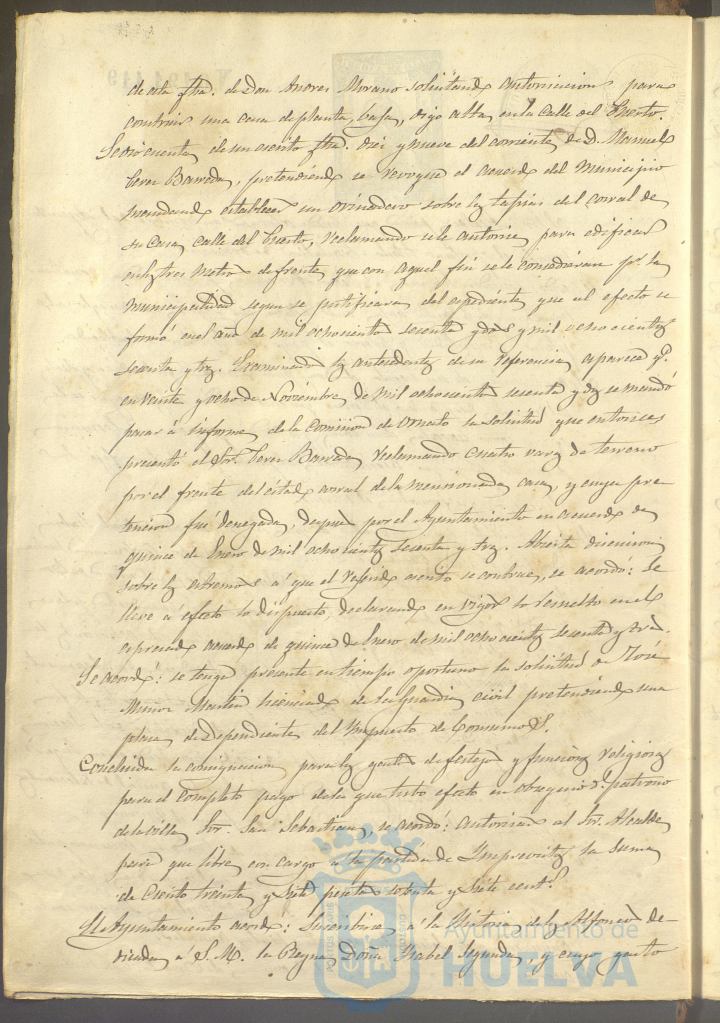 de esta fha. de Don Andres Morano solicitando autorizacion para
construir una casa de planta baja, digo alta, en la Calle del Puerto.
Se dió cuenta de un escrito fha. diez y nueve del corriente de D. Manuel
Perez Barreda, pretendiendo se revoque el acuerdo del Municipio
mandando establecer un orinadero sobre las tapias del corral de
su Casa, calle del Puerto, reclamando se le autorice para edificar
en los tres metros de frente que con aquel fin se le concedieran pr. la
municipalidad segun se justificara del espediente que al efecto se
formó en el año de mil ochocientos sesenta y dos y mil ochocientos
sesenta y tres. Examinados los antecedentes de su referencia, aparece qe.
en veinte y ocho de Noviembre de mil ochocientos sesenta y dos se mandó
pasar á informe de la Comision de Ornato la solicitud que entonces
presentó el Sor. Perez Barreda reclamando cuatro varas de terreno
por el frente del citado corral de la mencionada casa, y cuya pre-
tension fué denegada, despues por el Ayuntamiento en acuerdo de
quince de Enero de mil ochocientos sesenta y tres. Abierta discusion
sobre los estremos á que el referido escrito se contrae, se acordó: Se
lleve á efecto lo dispuesto, declarando en vigor lo resuelto en el
espresado acuerdo de quince de Enero de mil ochocientos sesenta y tres.
Se acordó: se tenga presente en tiempo oportuno la solicitud de José
Muñoz Martin licenciado de la Guardia civil pretendiendo una
plaza de Dependiente del Impuesto de Consumos.
Concluida la consignacion para los gastos de festejos y funciones religiosas
para el completo pago de la que tubo efecto en obsequio del patrono
de la villa Sor. San Sebastian, se acordó: Autorizar al Sor. Alcalde
para que libre con cargo a la partida de Imprevistos la suma
de Ciento treinta y siete pesetas setenta y siete cents.
El Ayuntamiento acordó: Suscribirse á la Historia de los Alfonsos de-
dicada á S. M. la Reyna Doña Ysabel Segunda, y cuyo gasto
Ayuntamiento de
HUELVA